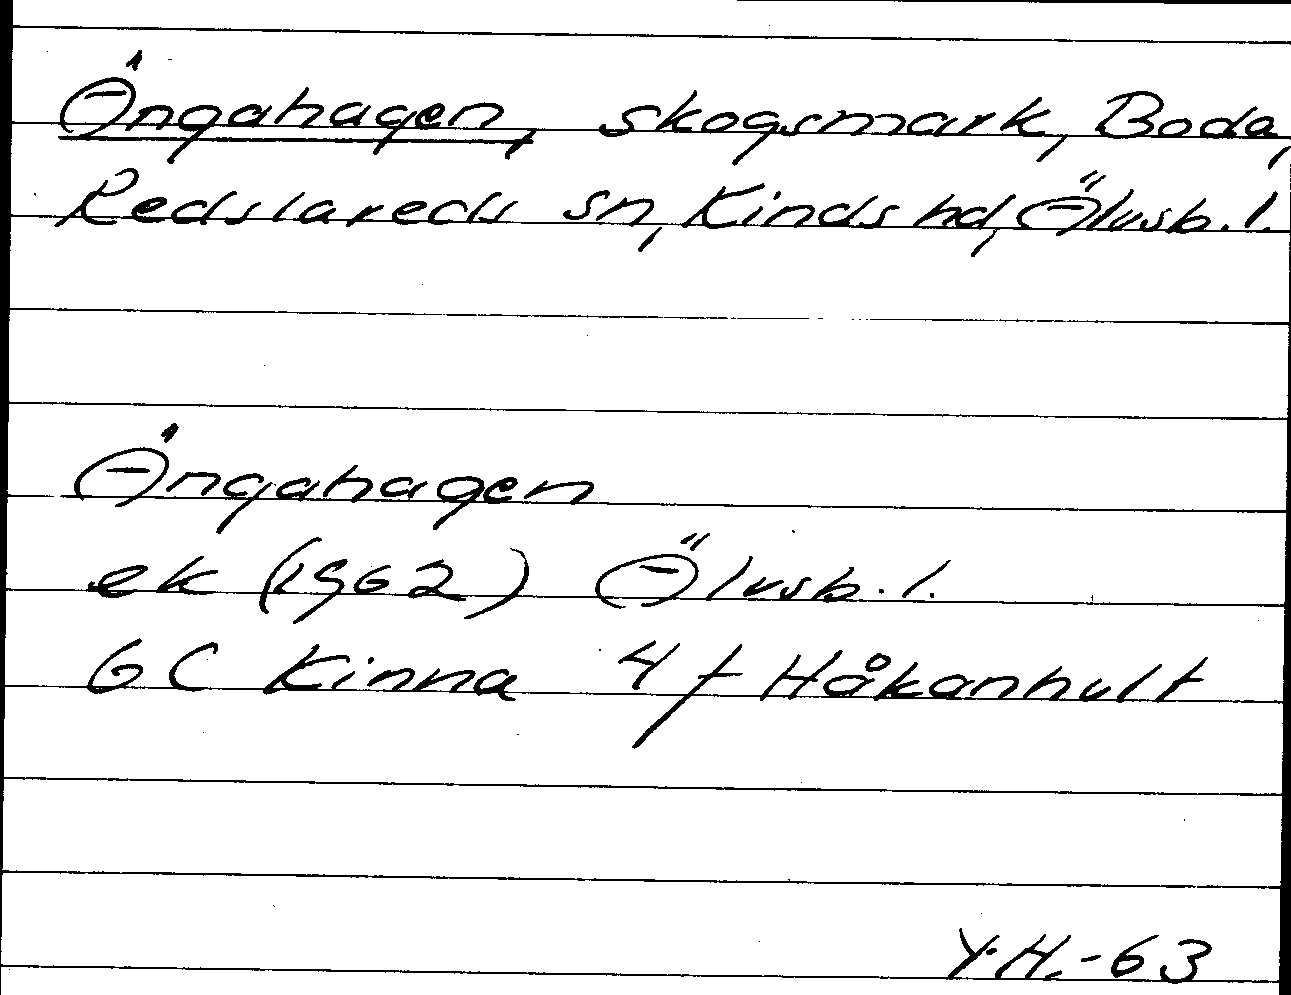 Ängahagen, skogsmark, Boda,
Redslareds sn, Kinds hd, Älvsb. l.
Ängahagen
ek (1962) Älvsb. l.
6 C Kinna 4 f Håkanhult
Y.H.-63